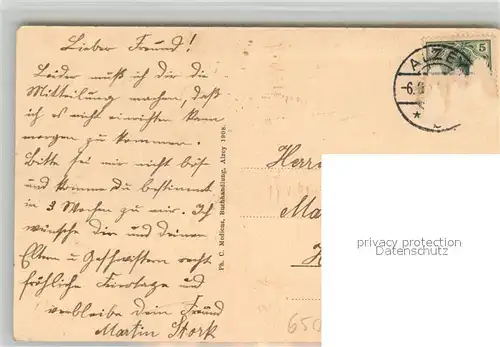 Lieber Freund!
Leider muß ich dir die
Mitteilung machen, daß
ich es nicht einrichten kann
morgen zu kommen.
Bitte sei mir nicht bös
und komme du bestimmt
in 3 Wochen zu mir. Ich
wünsche dir und deinen
Eltern u Geschwistern recht
fröhliche Feiertage und
verbleibe dein Freund
Martin Stork
Ph. C. Medicus, Buchhandlung, Alzey 1908.
ALZEY
5
Herrn
Ma
privacy protection
Datenschutz
650